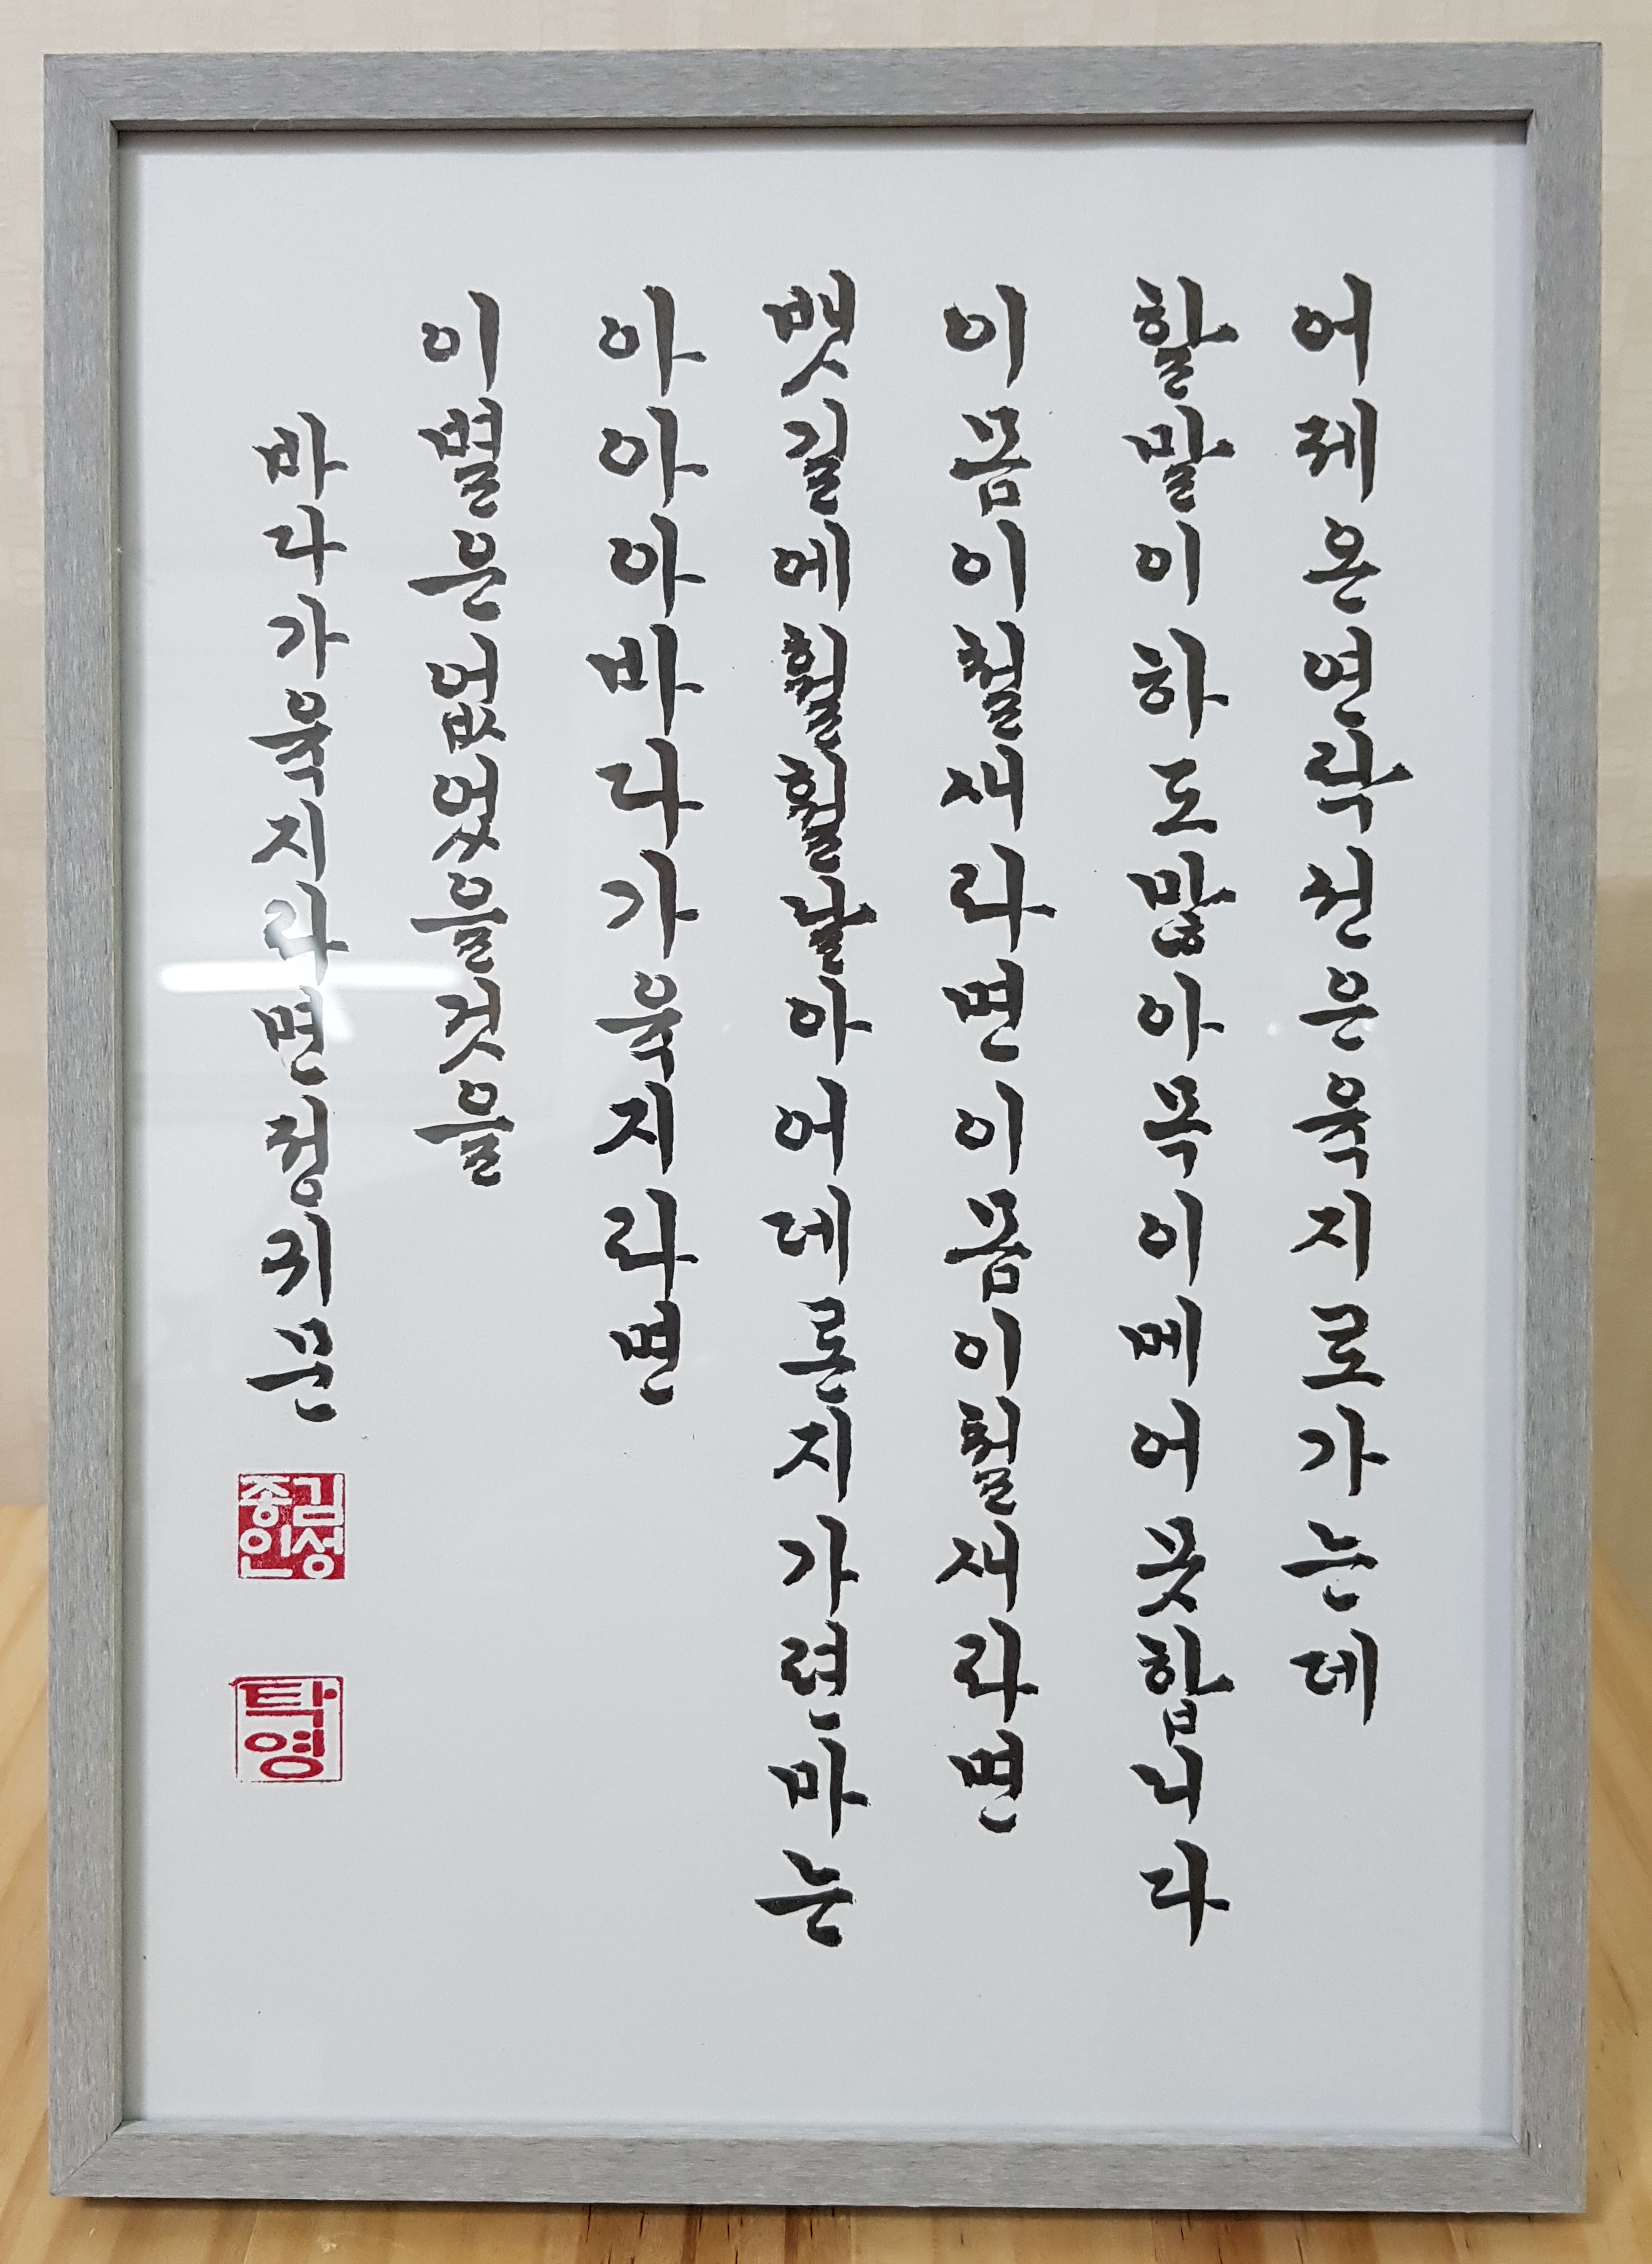 어제온연락선은육지로가는데
할말이하도많아목이메어못합니다
이몸이철새라면이몸이철새라면
뱃길에훨훨날아어데론지가련마는
아아아바다가육지라면
이별은없었을것을
바다가육지라면정귀문
김성
종인
탁
영